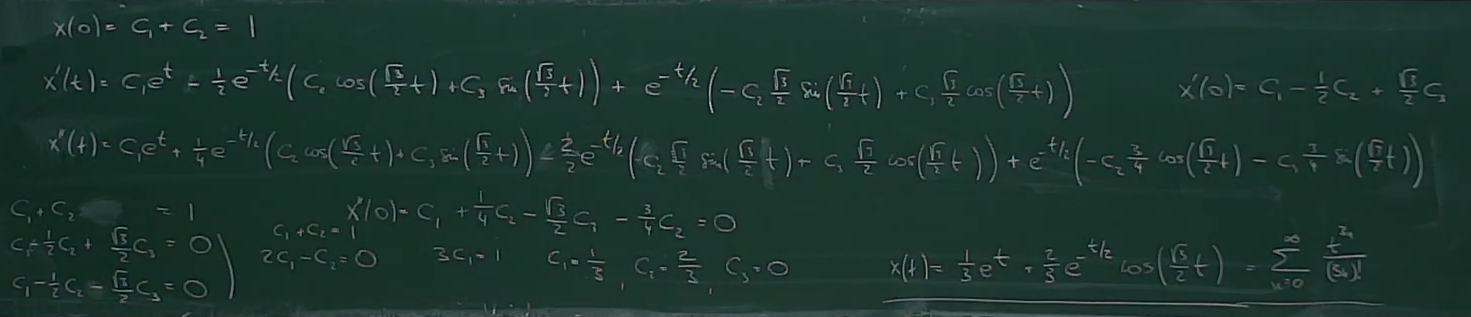 x(0) = C₁ + C₂ = 1
x'(t) = C₁eᵗ - 1/2 e^(-t/2) (C₂ cos(√3/2 t) + C₃ sin(√3/2 t)) + e^(-t/2) (-C₂ √3/2 sin(√3/2 t) + C₃ √3/2 cos(√3/2 t)) x'(0) = C₁ - 1/2 C₂ + √3/2 C₃
x''(t) = C₁eᵗ + 1/4 e^(-t/2) (C₂ cos(√3/2 t) + C₃ sin(√3/2 t)) - 2/2 e^(-t/2) (-C₂ √3/2 sin(√3/2 t) + C₃ √3/2 cos(√3/2 t)) + e^(-t/2) (-C₂ 3/4 cos(√3/2 t) - C₃ 3/4 sin(√3/2 t))
x''(0) = C₁ + 1/4 C₂ - √3/2 C₃ - 3/4 C₂ = 0
C₁ + C₂ = 1
C₁ - 1/2 C₂ + √3/2 C₃ = 0
C₁ - 1/2 C₂ - √3/2 C₃ = 0
C₁ + C₂ = 1
2C₁ - C₂ = 0 3C₁ = 1 C₁ = 1/3, C₂ = 2/3, C₃ = 0
x(t) = 1/3 eᵗ + 2/3 e^(-t/2) cos(√3/2 t) = ∑_(n=0)^∞ t^(3n)/(3n)!